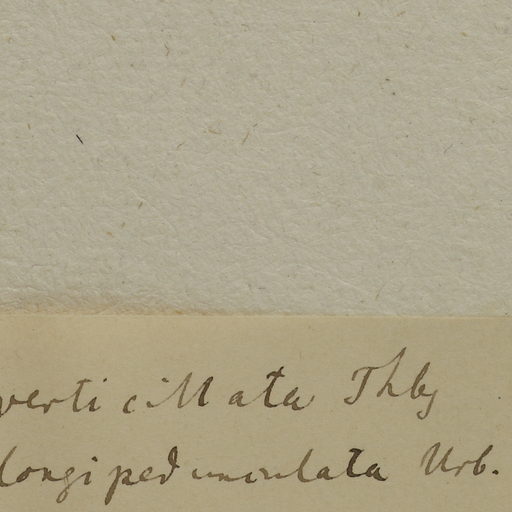 verticillata Thbg
longipedunculata Urb.